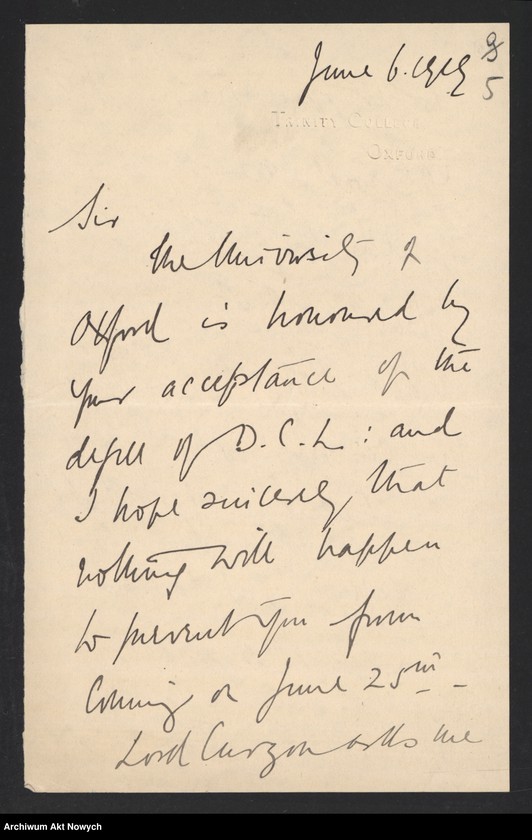 June 6. 1919
8
5
TRINITY COLLEGE
OXFORD
Sir
The University of
Oxford is honoured by
your acceptance of the
degree of D. C. L. : and
I hope sincerely that
nothing will happen
to prevent you from
coming on June 25th -
Lord Curzon asks me
Archiwum Akt Nowych